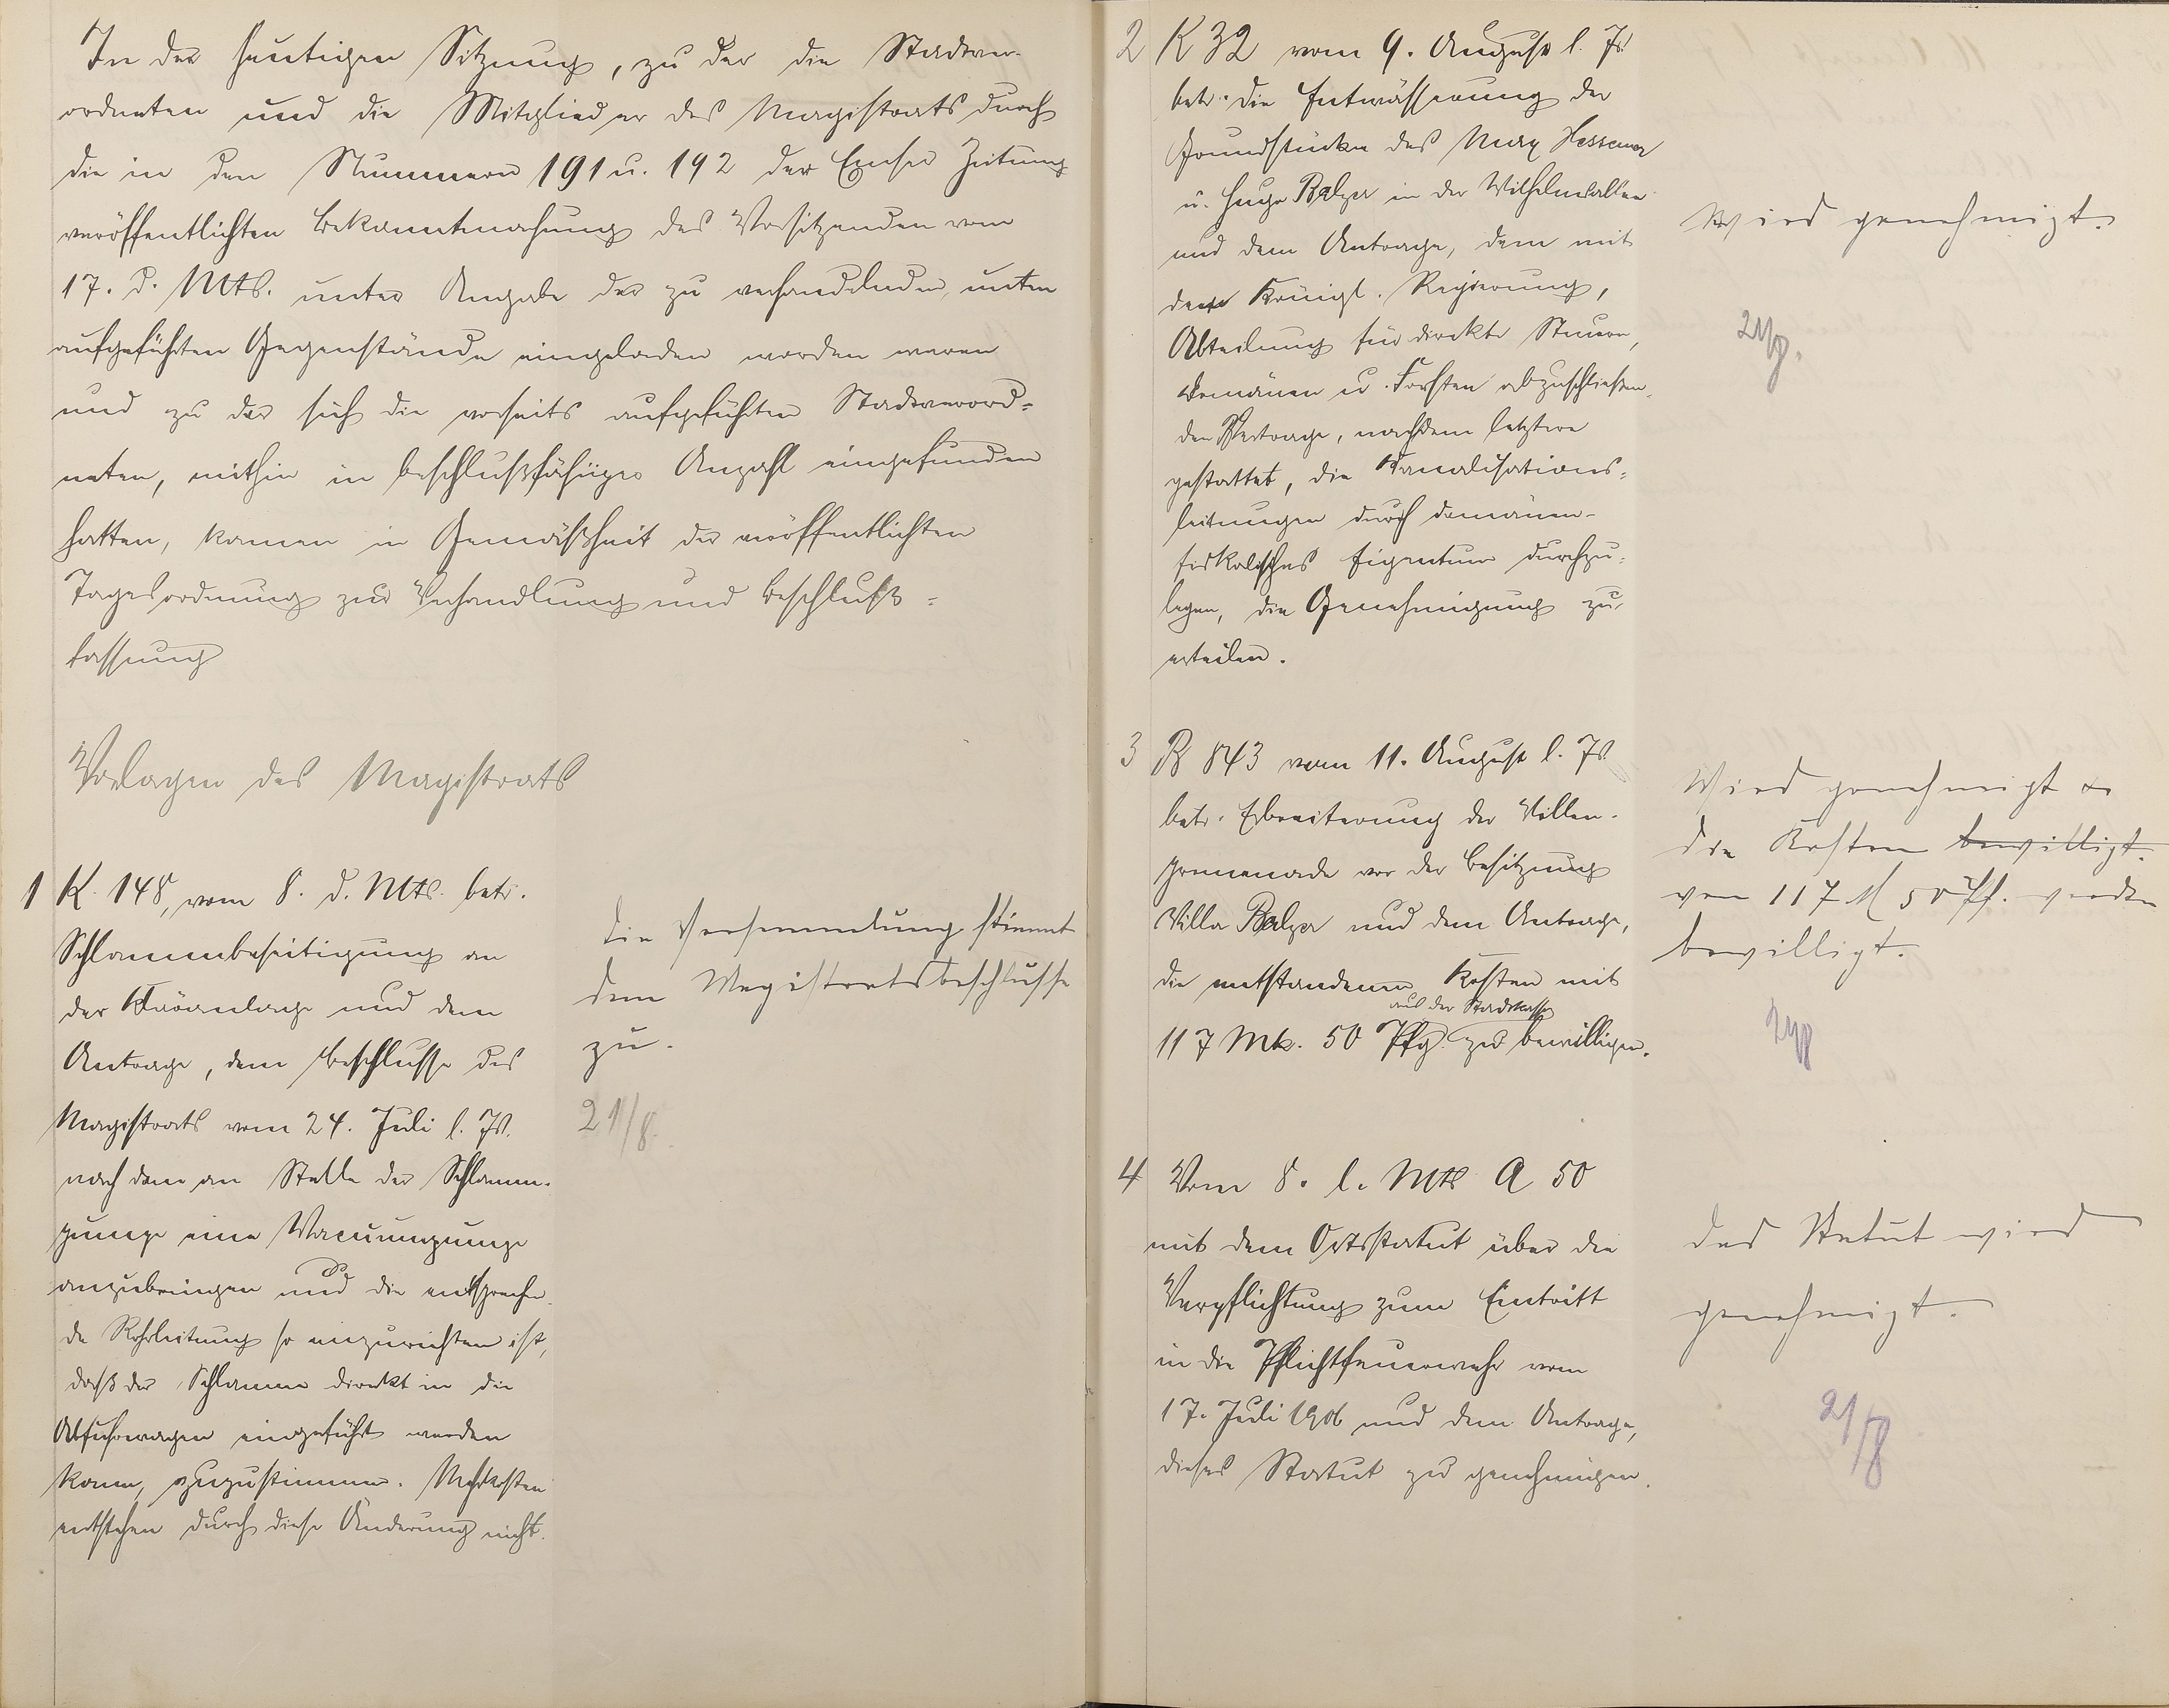 In der heutigen Sitzung, zu der die Stadtver-
ordneten und die Mitglieder des Magistrats durch
die in den Nummern 191 u. 192 der Emser Zeitung
veröffentlichten Bekanntmachung des Vorsitzenden vom
17. d. Mts. unter Angabe der zu verhandelnden, unten
aufgeführten Gegenstände eingeladen worden waren
und zu der sich die vorseits aufgeführten Stadtverord=
neten, mithin in beschlußfähiger Anzahl eingefunden
hatten, kamen in Gemäßheit der veröffentlichten
Tagesordnung zur Verhandlung und Beschluß=
fassung
Vorlagen des Magistrats
1 K. 148, vom 8. d. Mts. betr.
Schlammbeseitigung an
der Kläranlage und dem
Antrage, dem Beschlusse des
Magistrats vom 24. Juli l. Js.
nach dem an Stelle der Schlamm-
pumpe eine Vacuumpumpe
anzubringen und die entsprechen-
de Rohrleitung so einzurichten ist,
daß der Schlamm direkt in die
Abfuhrwagen eingeführt werden
kann, zuzustimmen. Mehrkosten
entstehen durch diese Änderung nicht.
Die Versammlung stimmt
dem Magistratsbeschlusse
zu.
21/8.
2 K 32 vom 9. August l. Js
betr. die Entwässerung der
Grundstücke des Marx Hessemer
u. Hugo Balzer in der Wilhelmsallee
und dem Antrage, dem mit
der Königl. Regierung,
Abteilung für direkte Steuern,
Domänen u. Forsten abzuschließen-
den Vertrage, nachdem letztere
gestattet, die Kanalisations=
leitungen durch domänen-
fiskalisches Eigentum durchzu=
legen, die Genehmigung zu
erteilen.
Wird genehmigt.
21/8.
3 B 843 vom 11. August l. Js
betr. Erbreiterung der Villen-
promenade vor der Besitzung
Villa Balzer und dem Antrage,
die entstandenen Kosten mit
aus der Stadtkasse
117 Mk. 50 Pfg. zu bewilligen.
Wird genehmigt u
die Kosten bewilligt.
von 117 M 50 Pf. werden
bewilligt.
21/8
4 Vom 8. l. Mts A 50
mit dem Ortsstatut über die
Verpflichtung zum Eintritt
in die Pflichtfeuerwehr vom
17. Juli 1906 und dem Antrage,
dieses Statut zu genehmigen.
Das Statut wird
genehmigt.
21/8